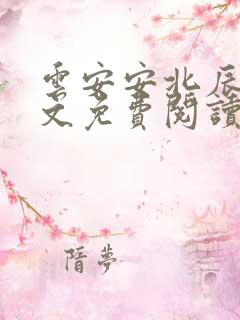 雲安安北辰
文免費閱讀
隋夢